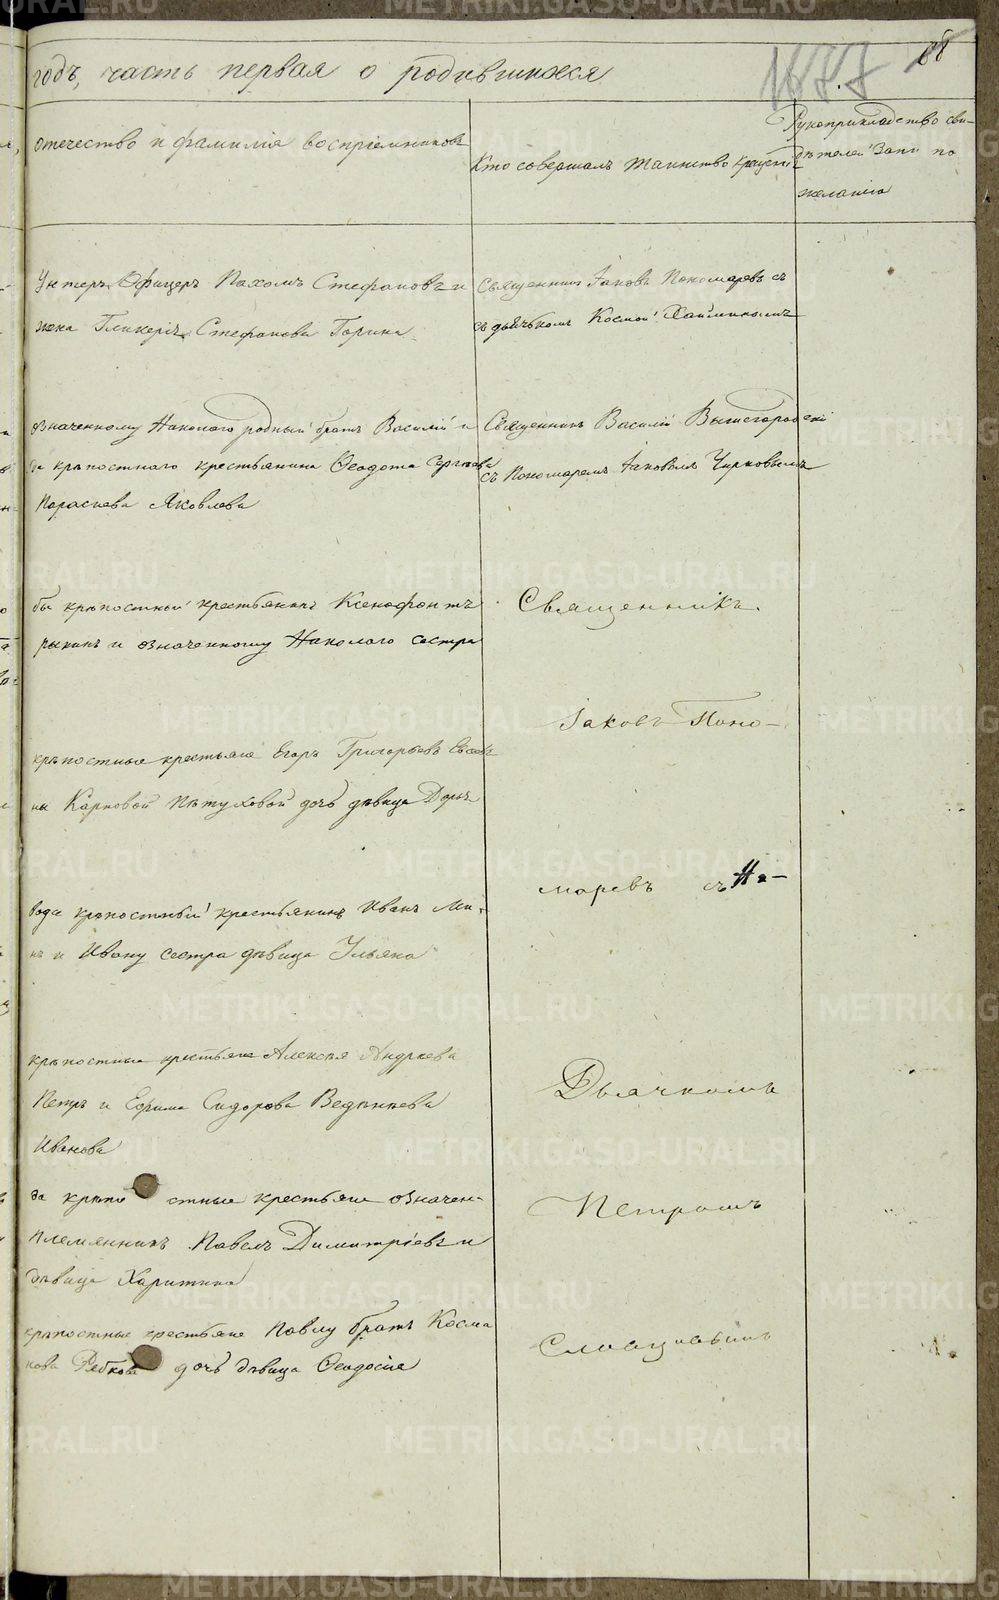 годъ, часть первая о родившихся
68
отечество и фамилія воспріемниковъ
Кто совершалъ таинство крещені
Рукоприкладство сви-
дѣтелей запи по
желанію
Унтеръ Офицеръ Пахомъ Стефановъ и
жена Гликерія Стефанова Горина
Священникъ Іаковъ Пономаревъ съ
съ дьячкомъ Космою
означенному Наколаго родный братъ Василій и
да крѣпостнаго крестьянина Ѳеодота Сергѣева
Параскева Яковлева
Священникъ Василій Вышегородскій
съ Пономаремъ Іаковомъ Чирковымъ
бы крѣпостный крестьянинъ Ксенофонтъ
рыкинъ и означенному Наколаго сестра
Священникъ
Іаковъ Поно-
крѣпостные крестьяне Егоръ Григорьевъ
ны Карповой Пѣтуховой дочь дѣвица Дарья
маревъ съ На-
вода крѣпостный крестьянинъ Иванъ Ми-
нъ и Ивану сестра дѣвица Ульяна
крѣпостные крестьяне Алексѣя Андреева
Петръ и Ефрима Сидорова Веденѣева
Иванова
Дьячкомъ
да крѣпо стные крестьяне означен-
племянникъ Павелъ Димитріевъ и
дѣвица Харитина
Петромъ
крѣпостные крестьяне Павлу братъ Косма
кова Рябкова дочь дѣвица Ѳеодосія
Словцовымъ
METRIKI.GASO-URAL.RU